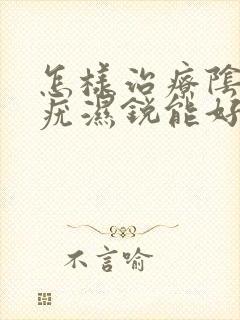 怎样治療陰
疣濕銳能好
不言喻